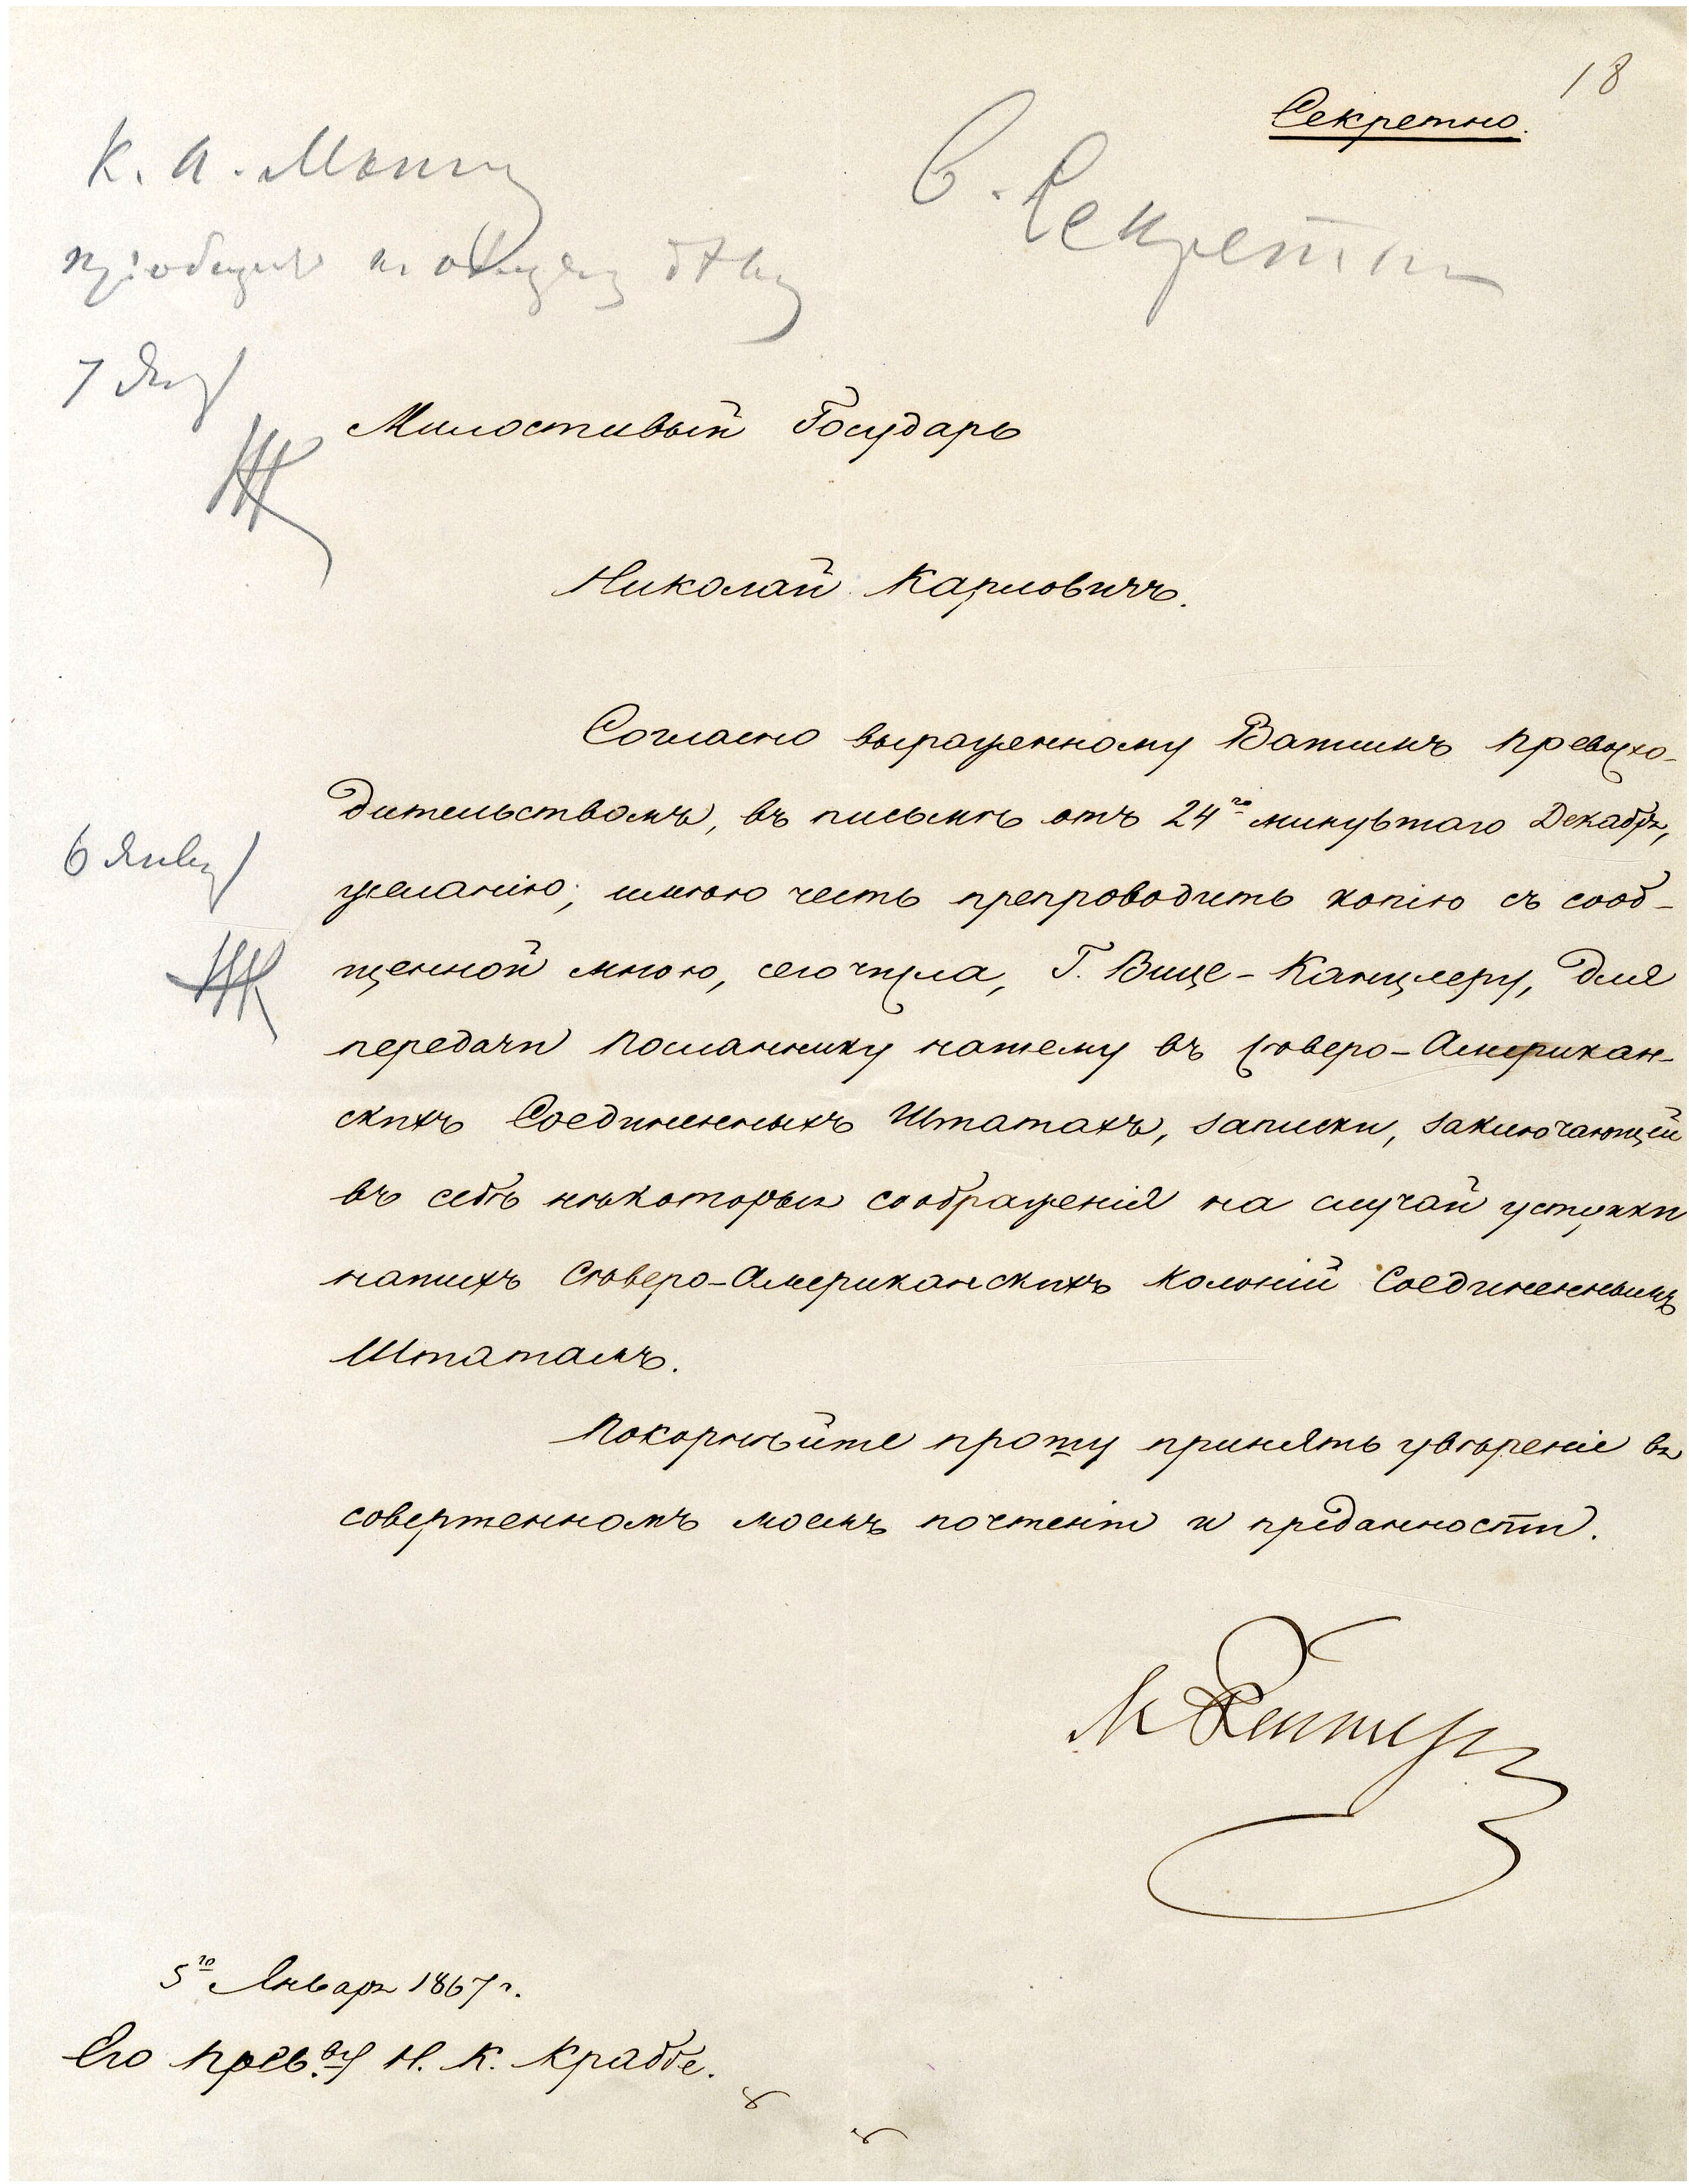 18
Секретно.
К. А. Манну
С. Секретно
пріобщить къ общему дѣлу
7 Янв
Милостивый Государь
Николай Карловичъ.
Согласно выраженному Вашимъ Превосхо-
дительствомъ, въ письмѣ отъ 24го минувшаго Декабря,
желанію, имѣю честь препроводить копію съ сооб-
щенной мною, сего числа, Г. Вице-Канцлеру, для
передачи Посланнику нашему въ Сѣверо-Американ-
скихъ Соединенныхъ Штатахъ, записки, заключающей
въ себѣ нѣкоторыя соображенія на случай уступки
нашихъ Сѣверо-Американскихъ Колоній Соединеннымъ
Штатамъ.
6 Янв
Покорнѣйше прошу принять увѣреніе въ
совершенномъ моемъ почтеніи и преданности.
М Рейтернъ
5го Января 1867 г.
Его Прев.ву Н. К. Краббе.